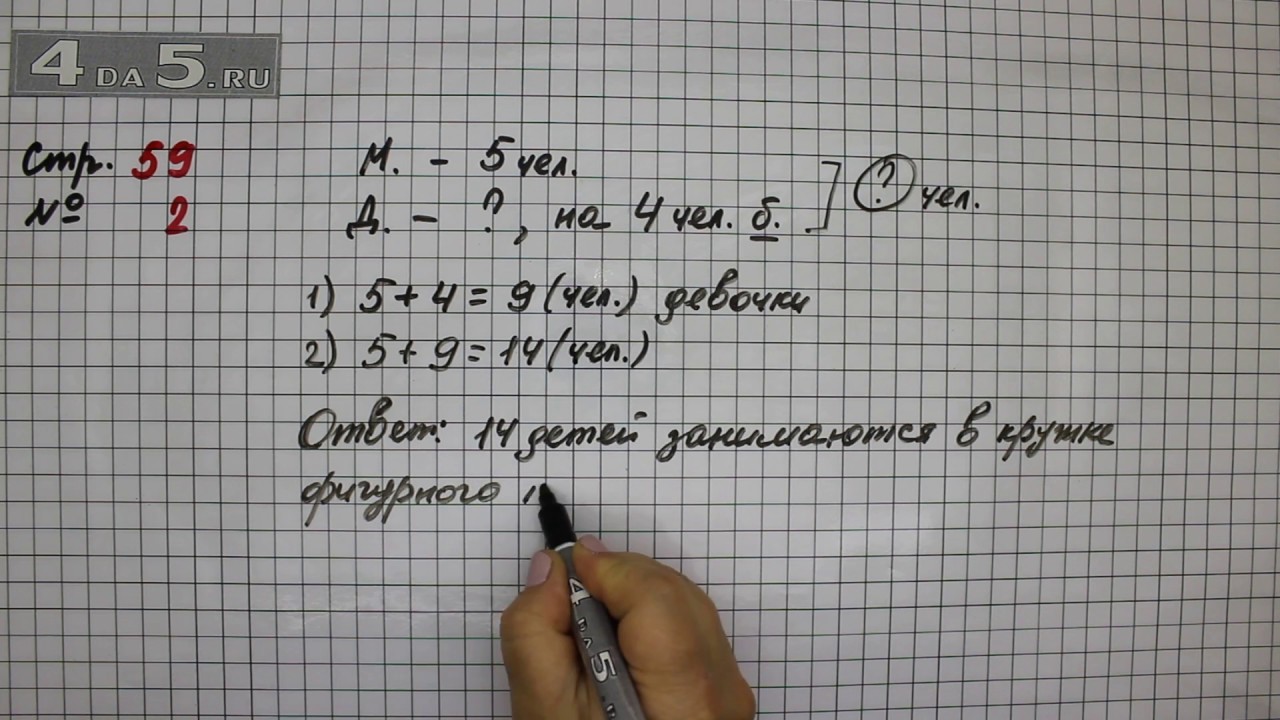 4 DA 5.RU
Стр. 59
№ 2
М. - 5 чел.
Д. - ?, на 4 чел. б.
? чел.
1) 5 + 4 = 9 (чел.) девочки
2) 5 + 9 = 14 (чел.)
Ответ: 14 детей занимаются в кружке
фигурного
4 DA 5.R